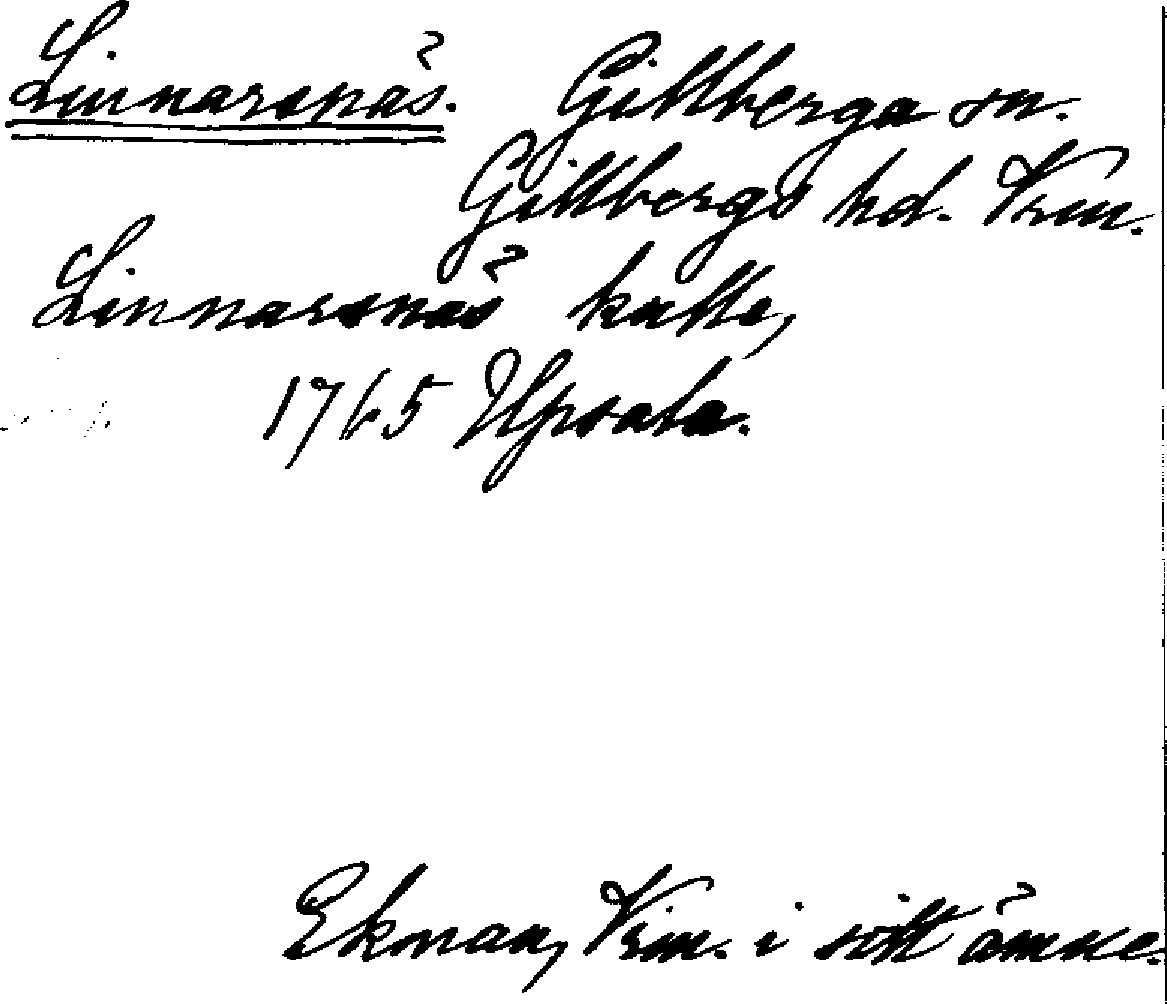 Linnarsnäs. Gillberga sn.
Gillbergs hd. Vrm.
Linnarsnäs kulle,
1765 Upsala.
Ekman, Vrm. i sitt ämne.